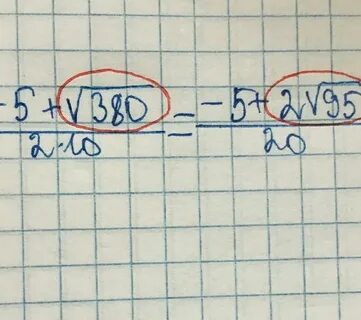 -5 + √380 / 2·10 = -5 + 2√95 / 20